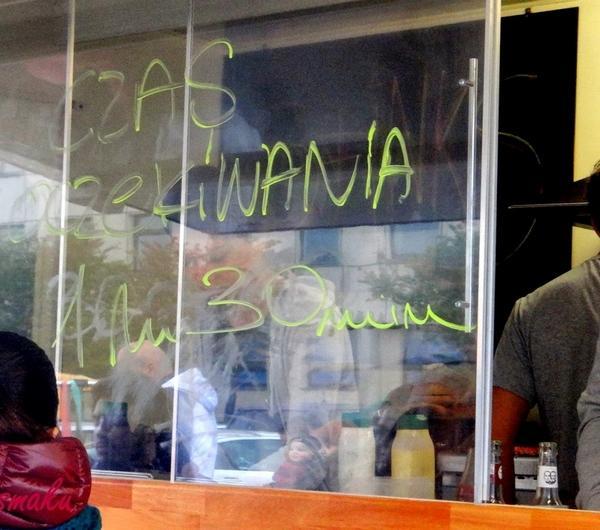 CZAS
OCZEKIWANIA
1h 30 min
smaku